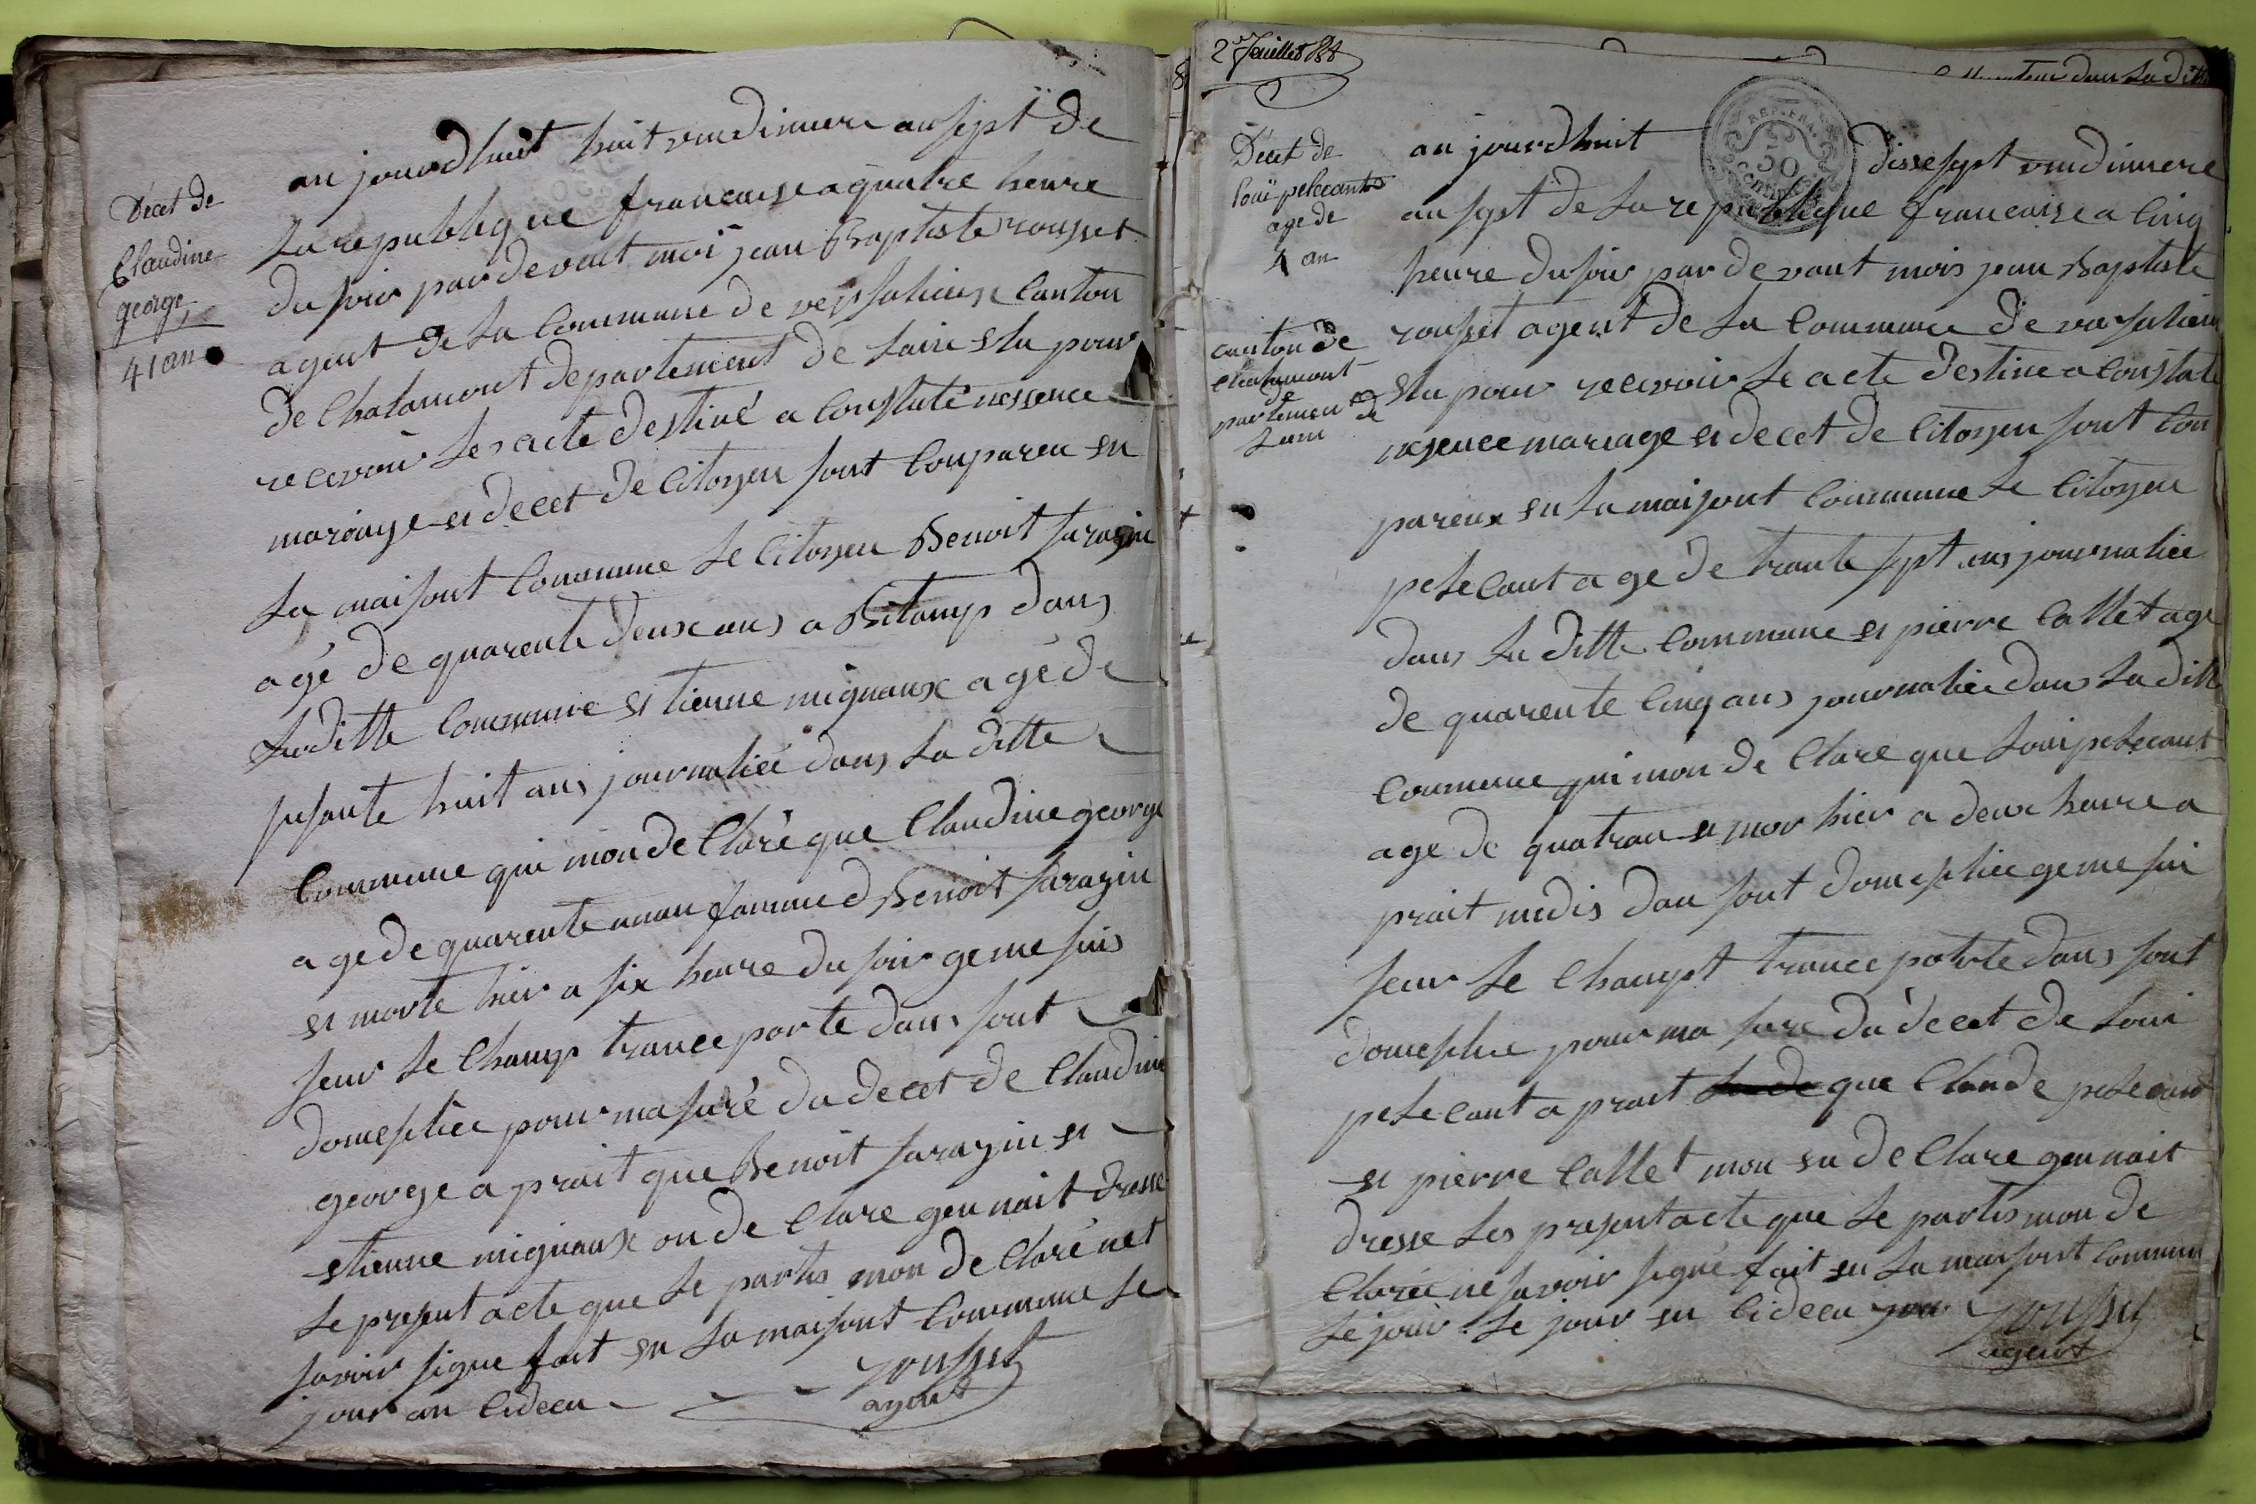 Décet de
Claudine
george
41 an
au jourdhuit huit vendimiere an sept de
La republique francaise a quatre heure
du soir par devant moi jean Baptiste rousset
agent de La Commune de versalieux Canton
de Chalamont departement de Lain Elu pour
recevoir Les acte destiné a Constaté nessence
mariage et decet de Citoyen sont Conpareu en
La maisont Commune Le Citoyen Benoit sarazin
agé de quarente deux ans a Bitamp dans
Laditte Commune Etienne mignaux agé de
sesante huit ans journalié dans La ditte
Commune qui mon de Claré que Claudine george
age de quarente un an famme d Benoit sarazin
et morte hier a six heure du soir ge me suis
seur Le Champ trance porte dans sont
domesplice pour ma suré du decet de Claudine
george a prait que Benoit sarazin et
etienne mignaux on de Clare gen nait dresse
Le presentacte que Le partis mon de Claré net
savoir signe fait en La maisont Commune Le
jour an Cidecu
rousset
agent
2er feuillet
Décet de
Loui pelecant
age de
4 an
canton de
Chalamont
de
partement de
Lain
REP. FRA.
50
Centimes
au jourdhuit dissesept vendimiere
an sept de La republique francaise a Cinq
heure du soir par devant mois jean Baptiste
rousset agent de La Commune de versalieu
Elu pour recevoir Le acte destine a Constate
nesence mariage et decet de Citoyen sont Con
pareux en La maisont Commune Le Citoyen
pelecant age de trante sept ans journaliee
dans La ditte Commune et pierre Callet age
de quarente Cinq ans journaliee dans La ditte
Commune qui mon de Clare que Loui pelecant
age de quatran et mor hier a deux heure a
prait medis dan sont domesplice ge me sui
seur Le Champt trance porte dans sont
domesplice pour ma sure du décet de Loui
pelecant a prait La de que Claude pelecant
et pierre Callet mon en de Clare gen nait
dresse Les presentacte que Le partis mon de
Clarée ne savoir signé fait en La maisont Commune
Le jour Le jour en Cidecu rousset
agent